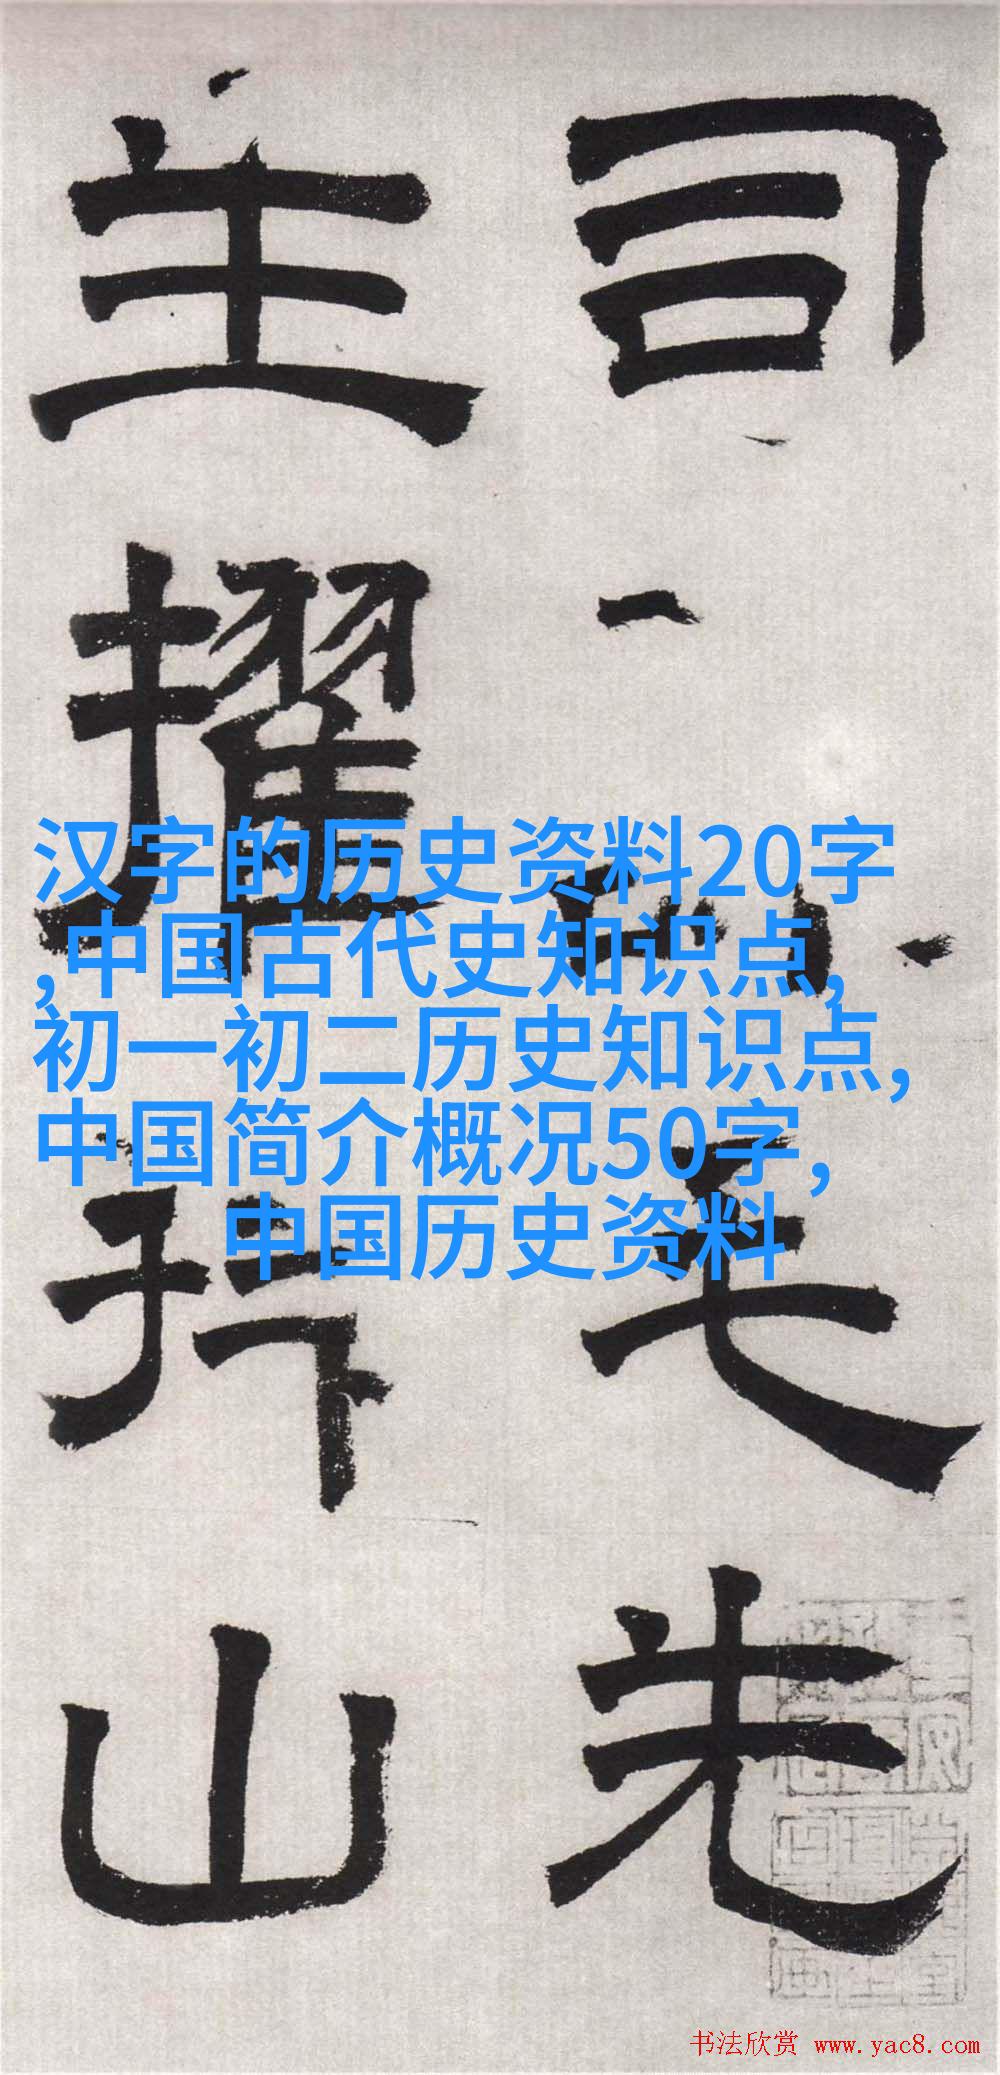 司
先
主
擢
拜
山
汉字的历史资料20字
,中国古代史知识点,
初一初二历史知识点,
中国简介概况50字,
中国历史资料
书法欣赏 www.yac8.com